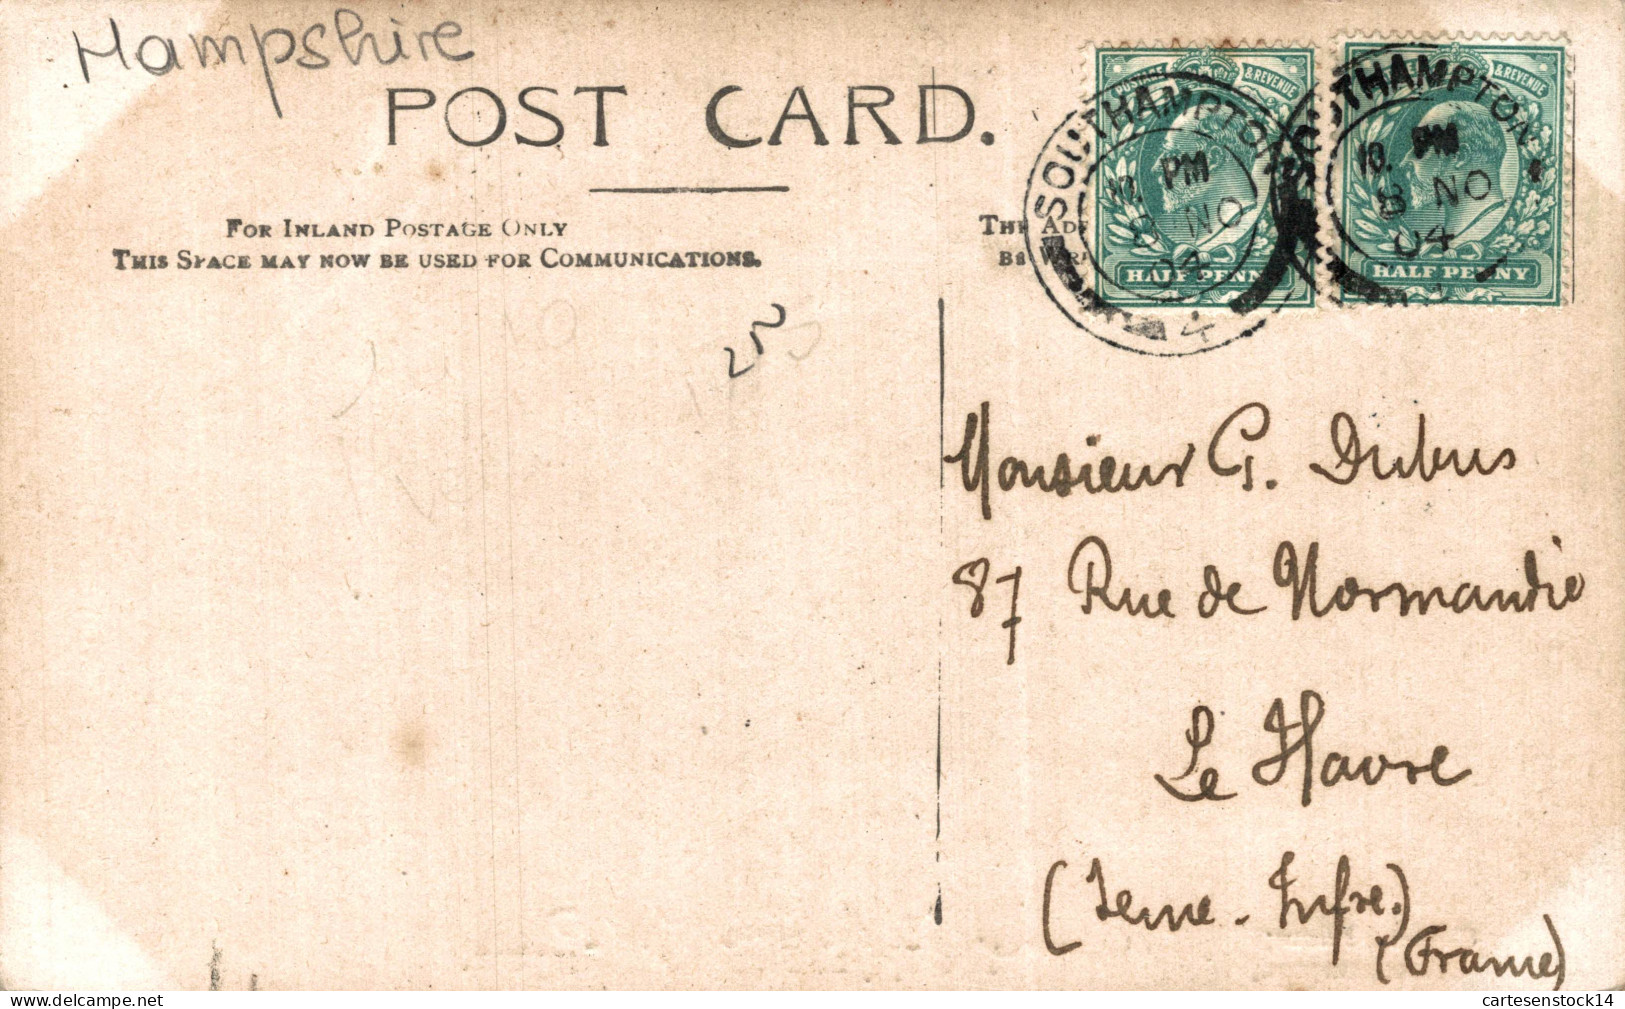 Hampshire
POST CARD.
FOR INLAND POSTAGE ONLY
THIS SPACE MAY NOW BE USED FOR COMMUNICATIONS.
THE AD
BE WR
POSTAGE & REVENUE
HALF PENN
SOUTHAMPTON
PM
8 NO
04
4
& REVENUE
HALF PENNY
SOUTHAMPTON
10. PM
8 NO
04
Monsieur G. Dubus
87 Rue de Normandie
Le Havre
(Seine-Infre.)
(France)
cartesenstock14